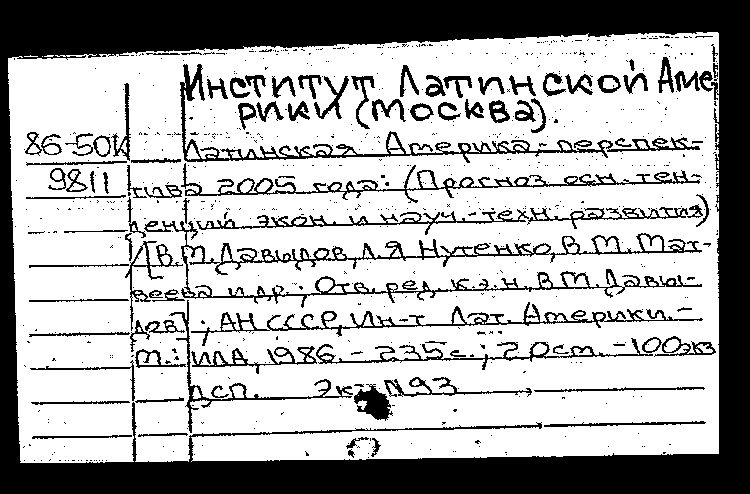 Институт Латинской Аме
рики (Москва).
86-50К Латинская Америка,- перспек-
9811 тива 2005 года: (Прогноз осн. тен-
денций экон. и науч.-техн. развития)
/[В.М. Давыдов, Л.Я Нутенко, В.М. Мат-
веева и др.; Отв. ред. к.э.н, В.М. Давы-
дов]; АН СССР, Ин-т Лат. Америки.-
М.: ИЛА, 1986. - 235с.; 20см. -100экз
дсп. Экз N93